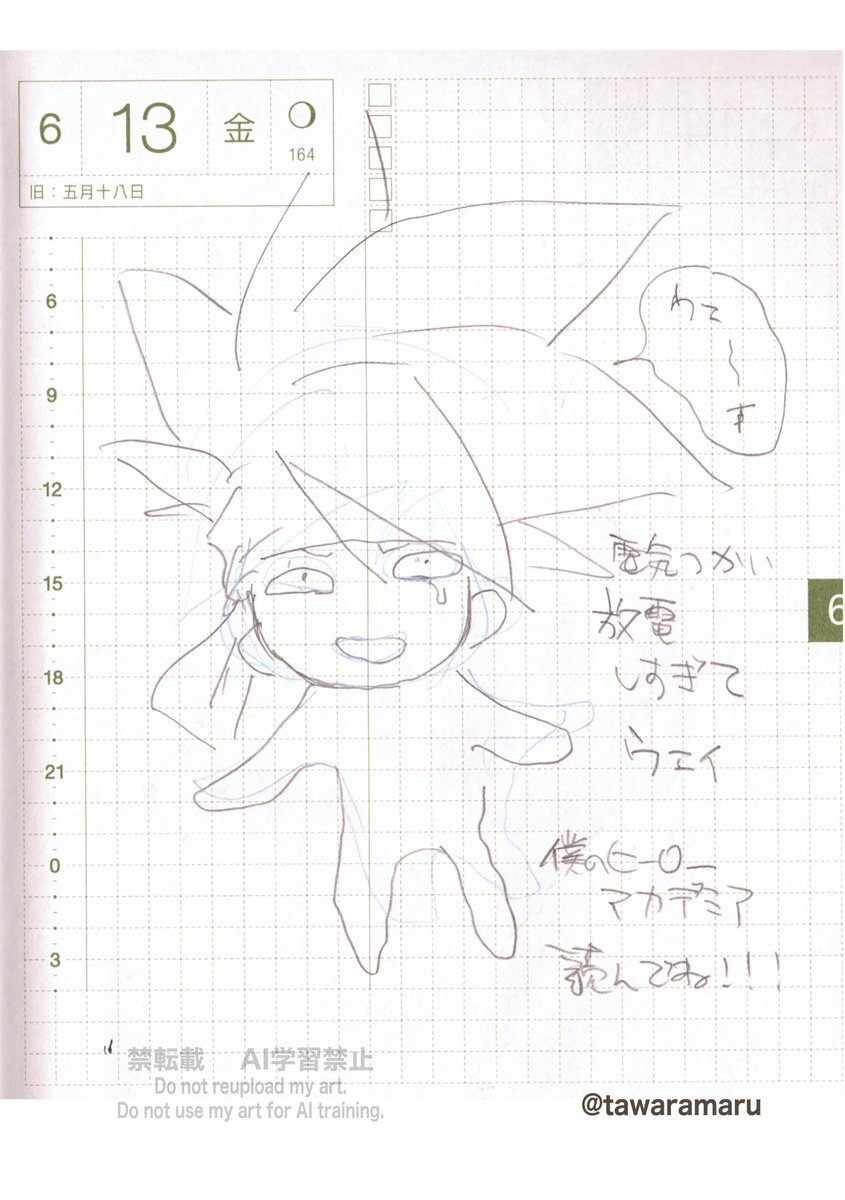 6 13 金
164
旧：五月十八日
6
9
12
15
18
21
0
3
電気つかい
放電
しすぎて
ウェイ
僕のヒーロー
アカデミア
読んでね!!!
6
禁転載 AI学習禁止
Do not reupload my art.
Do not use my art for AI training.
@tawaramaru